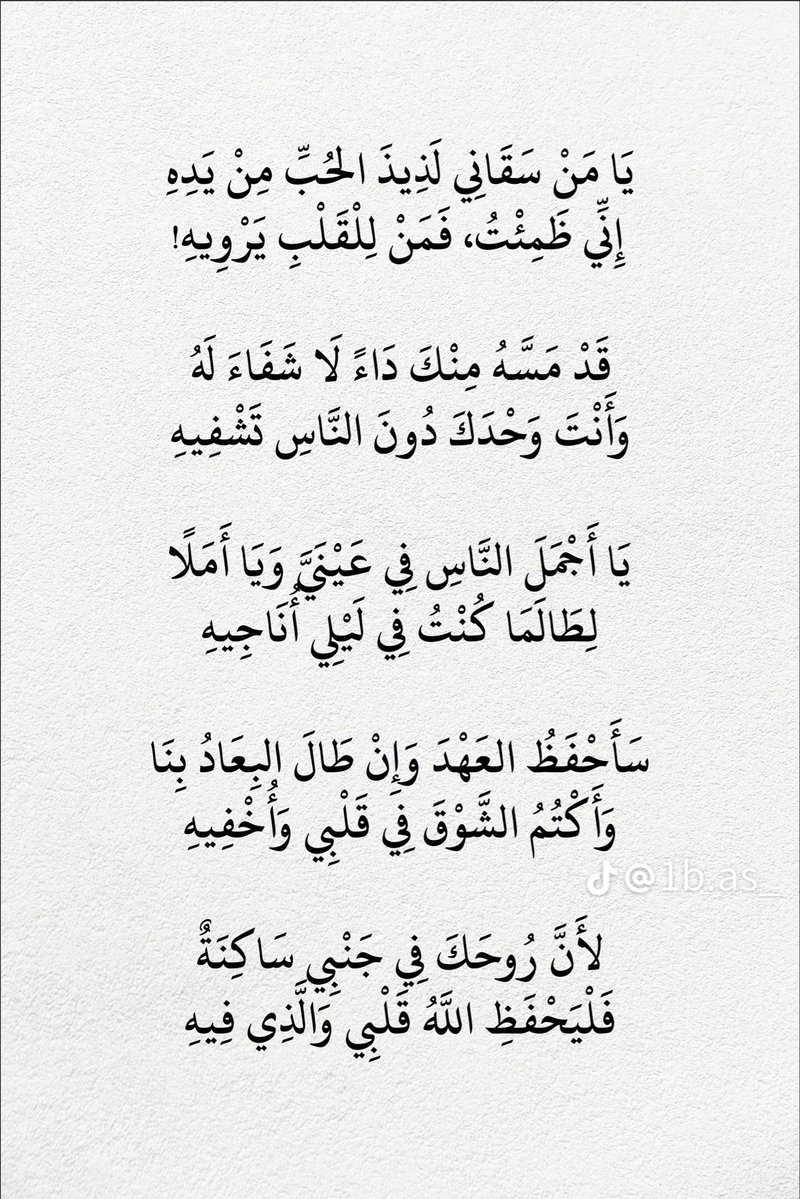 يَا مَنْ سَقَانِي لَذِيذَ الحُبِّ مِنْ يَدِهِ
إِنِّي ظَمِئْتُ، فَمَنْ لِلْقَلْبِ يَرْوِيهِ!
قَدْ مَسَّهُ مِنْكَ دَاءً لَا شَفَاءَ لَهُ
وَأَنْتَ وَحْدَكَ دُونَ النَّاسِ تَشْفِيهِ
يَا أَجْمَلَ النَّاسِ فِي عَيْنَيَّ وَيَا أَمَلًا
لِطَالَمَا كُنْتُ فِي لَيْلِي أُنَاجِيهِ
سَأَحْفَظُ العَهْدَ وَإِنْ طَالَ البِعَادُ بِنَا
وَأَكْتُمُ الشَّوْقَ فِي قَلْبِي وَأُخْفِيهِ
@1b.as_
لأَنَّ رُوحَكَ فِي جَنْبِي سَاكِنَةٌ
فَلْيَحْفَظِ اللَّهُ قَلْبِي وَالَّذِي فِيهِ